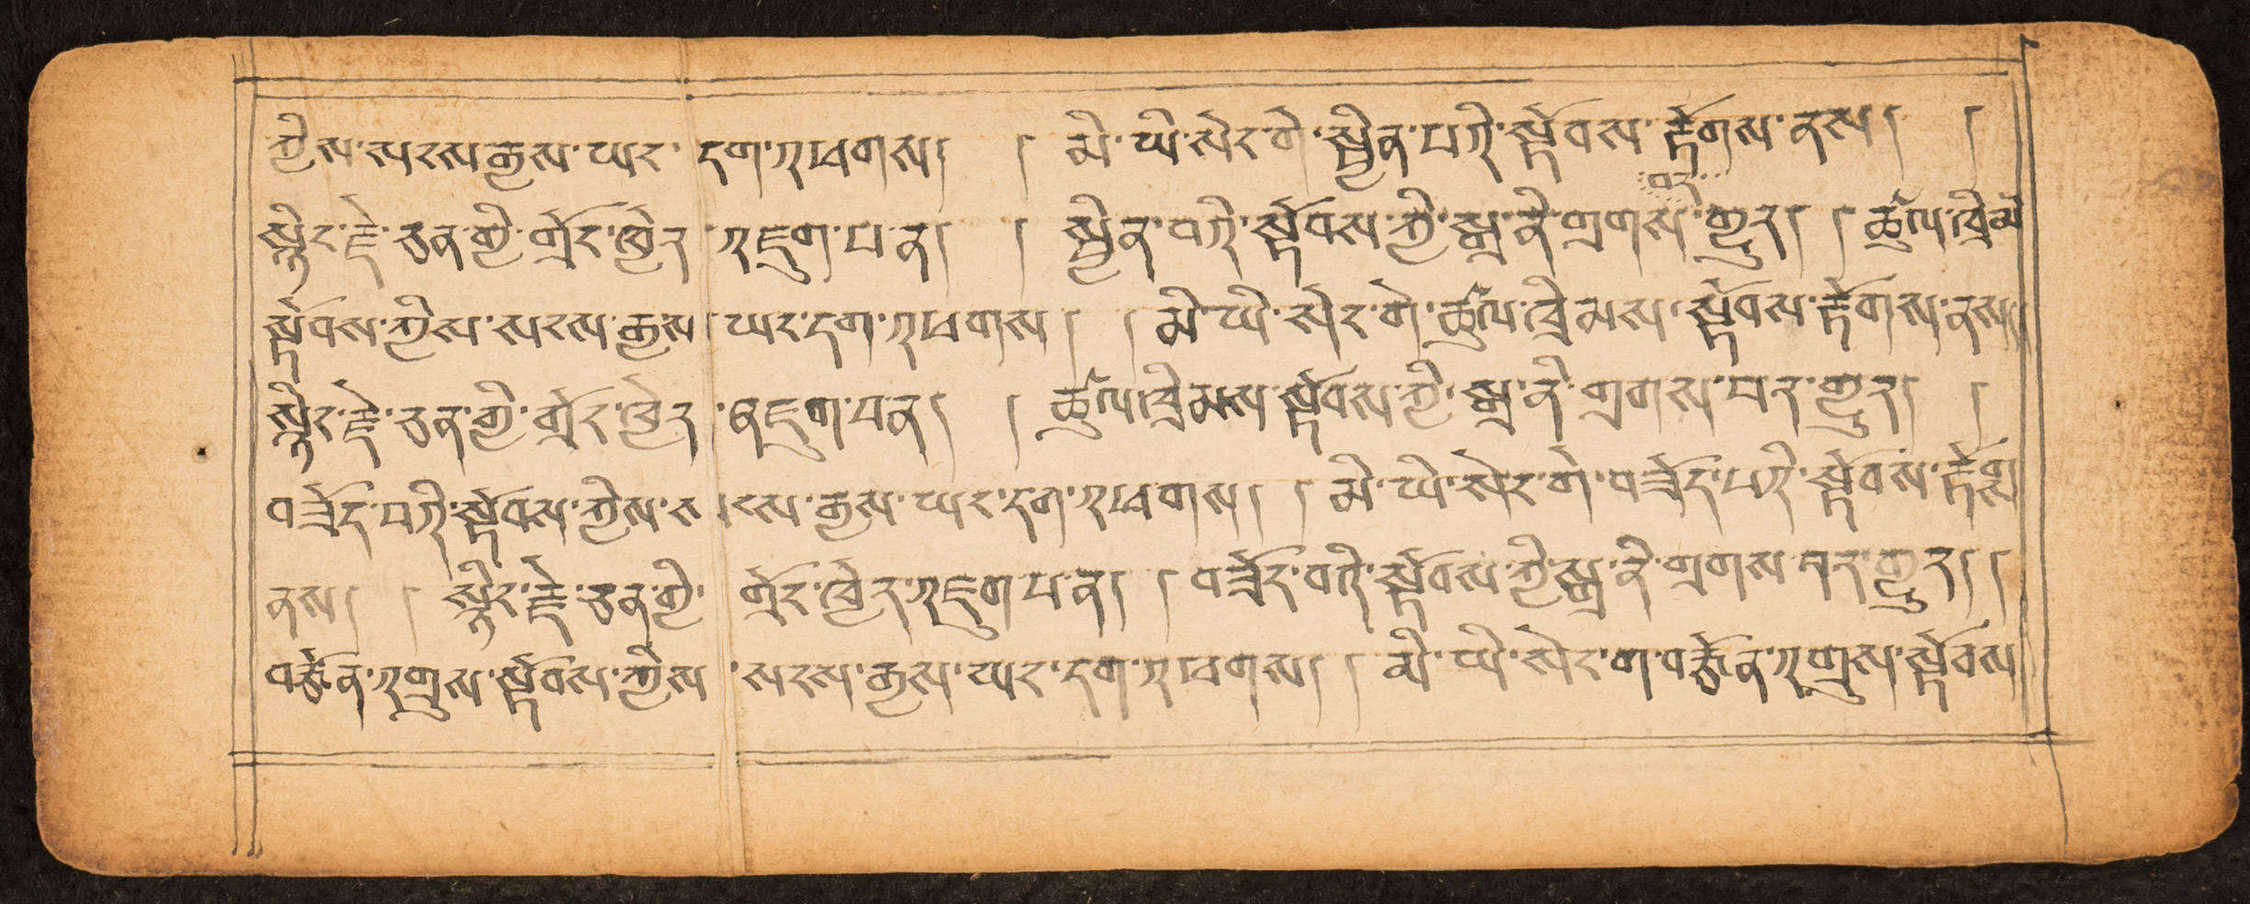 ཀྱིས་སངས་རྒྱས་ཡང་དག་འཕགས། །མི་ཡི་སེང་གེ་སྦྱིན་པའི་སྟོབས་རྟོགས་ནས། །
སྙིང་རྗེ་ཅན་གྱི་གྲོང་ཁྱེར་འཇུག་པ་ན། །སྦྱིན་པའི་སྟོབས་ཀྱི་སྒྲ་ནི་གྲགས་པར་གྱུར། །ཚུལ་ཁྲིམ
སྟོབས་ཀྱིས་སངས་རྒྱས་ཡང་དག་འཕགས། །མི་ཡི་སེང་གེ་ཚུལ་ཁྲིམས་སྟོབས་རྟོགས་ནས།
སྙིང་རྗེ་ཅན་གྱི་གྲོང་ཁྱེར་ནཇུག་པན། །ཚུལ་ཁྲིམས་སྟོབས་ཀྱི་སྒྲ་ནི་གྲགས་པར་གྱུར། །
བཟོད་པའི་སྟོབས་ཀྱིས་སངས་རྒྱས་ཡང་དག་འཕགས། །མི་ཡི་སེང་གེ་བཟོད་པའི་སྟོབས་རྟོགས
ནས། །སྙིང་རྗེ་ཅན་གྱི་གྲོང་ཁྱེར་འཇུག་པ་ན། །བཟོད་བའི་སྟོབས་ཀྱི་སྒྲ་ནི་གྲགས་པར་གྱུར། །
བརྩོན་འགྲུས་སྟོབས་ཀྱིས་སངས་རྒྱས་ཡང་དག་འཕགས། །མི་ཡི་སེང་ག་བརྩོན་འགྲུས་སྟོབས